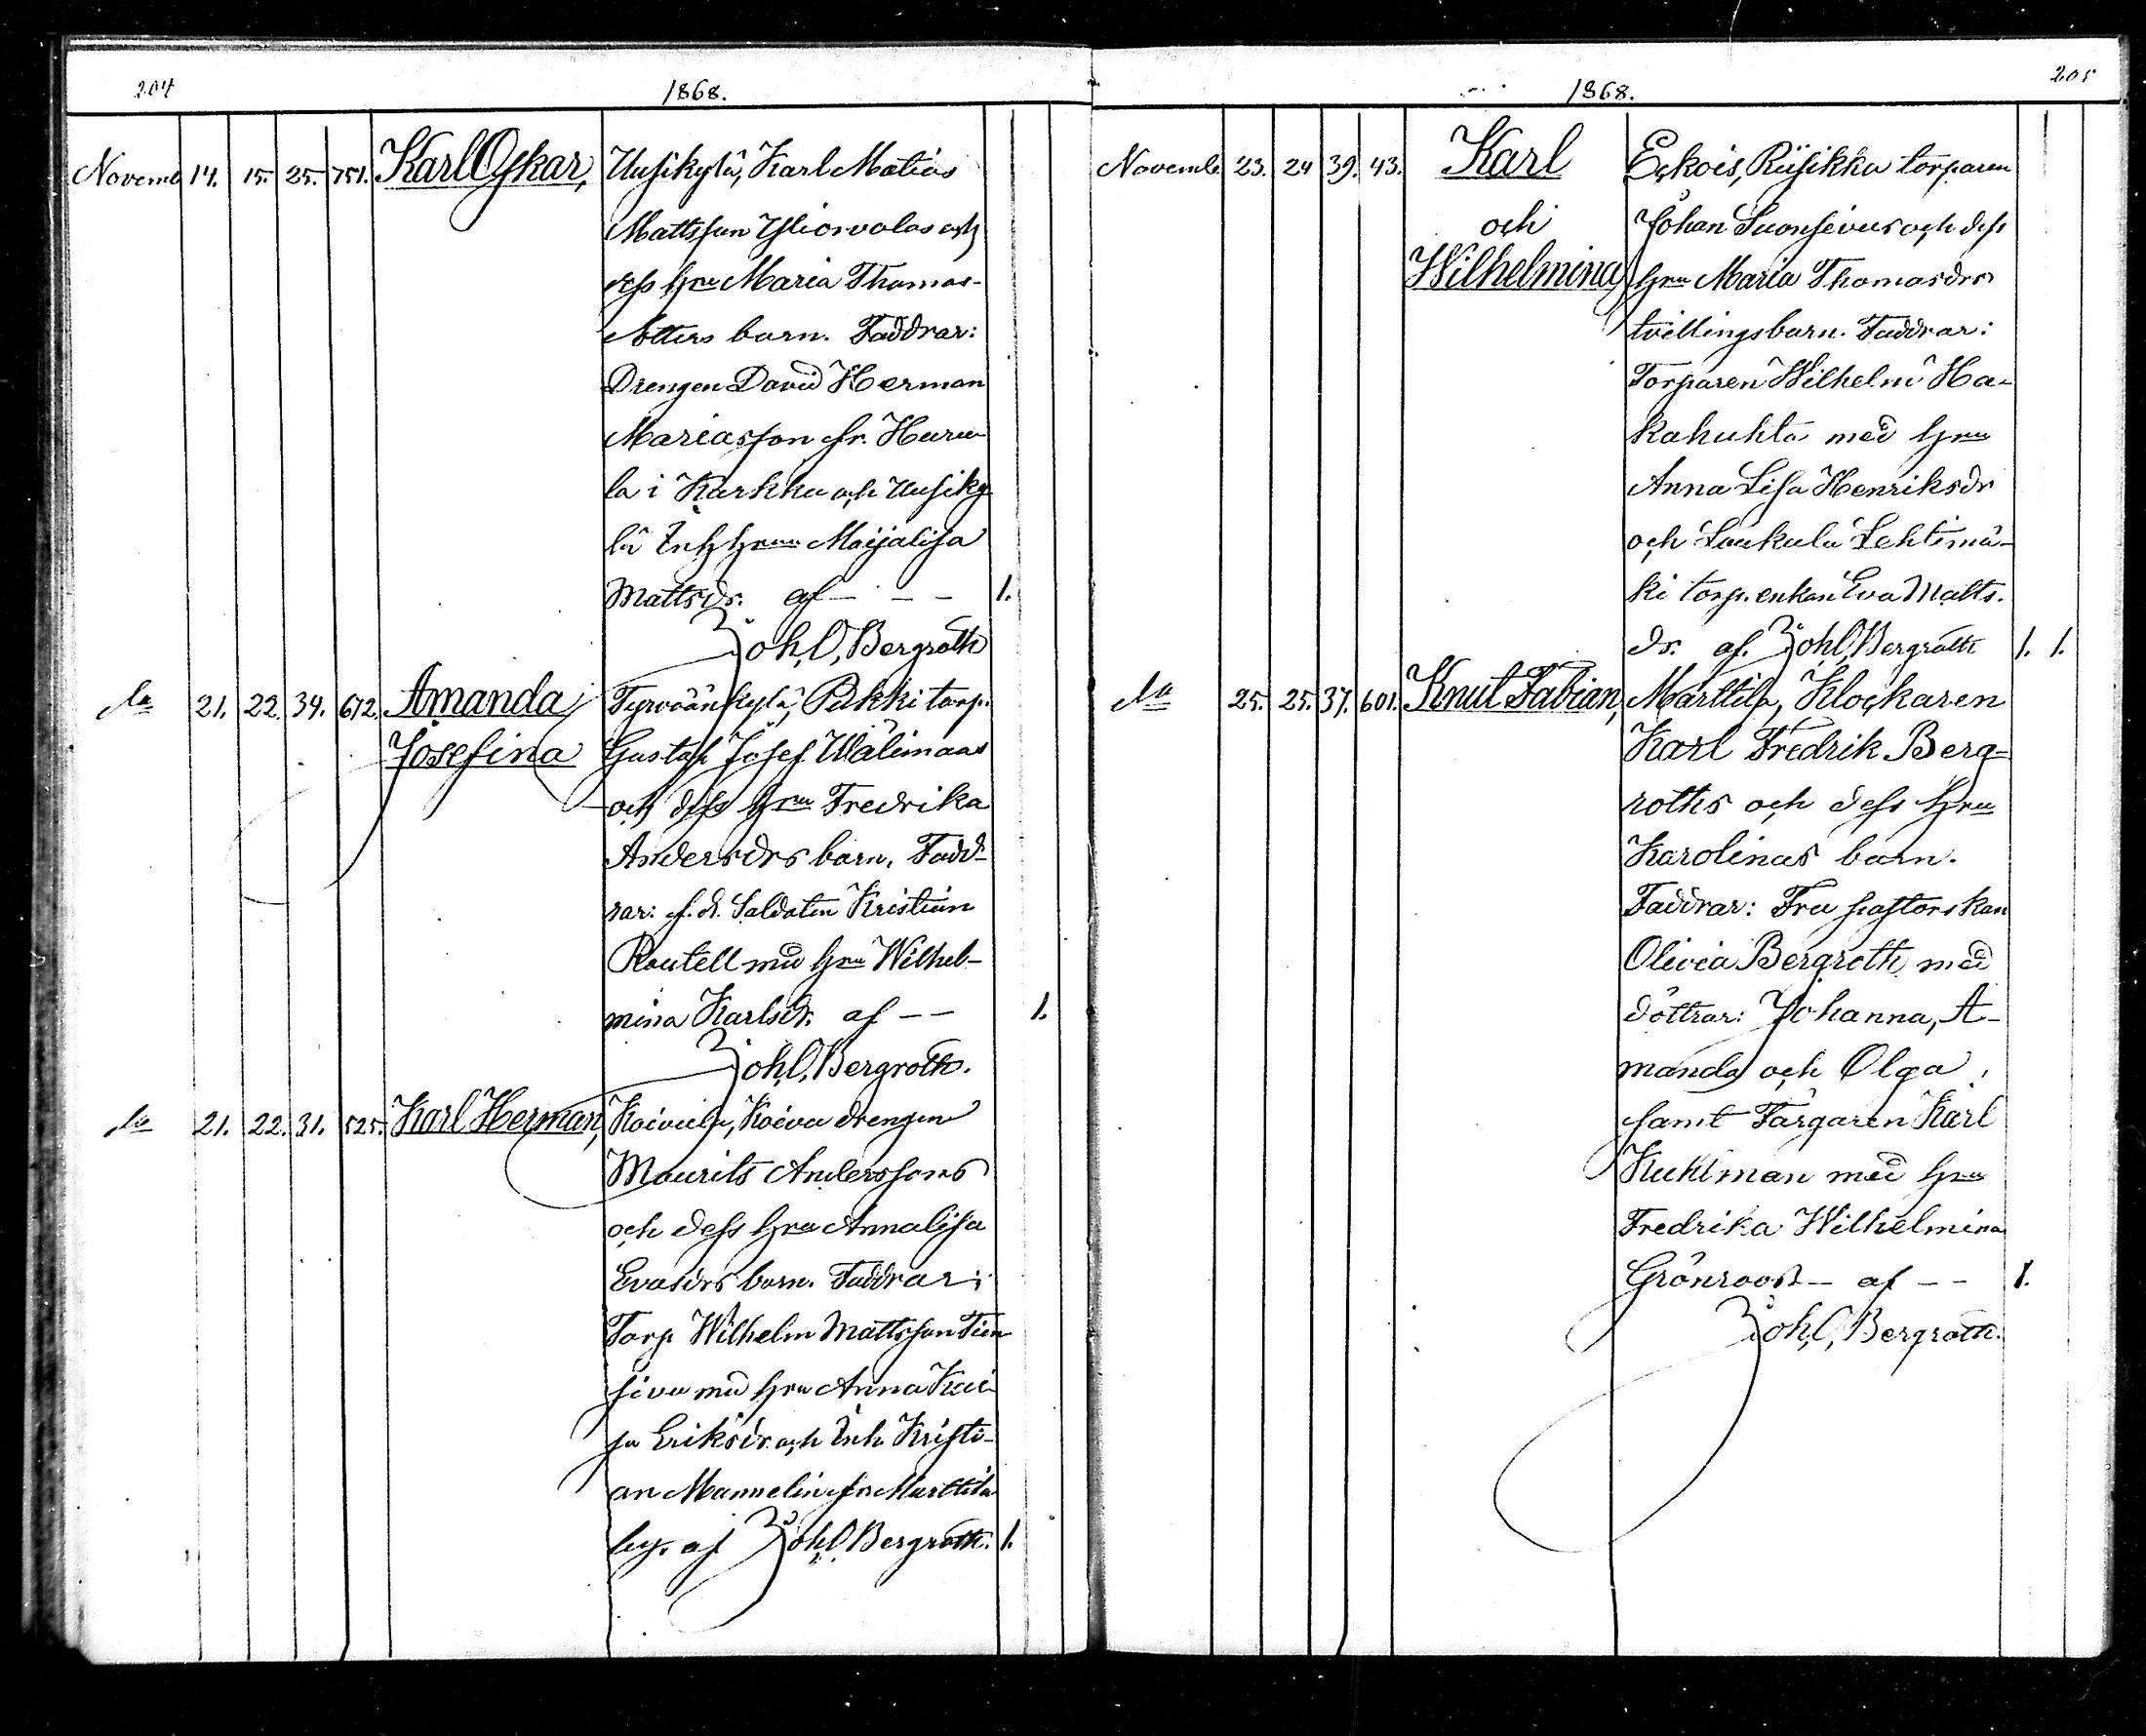 204
1868.
Novemb 14. 15. 25. 751. Karl Oskar, Uusikylä, Karl Matias
Mattsson Yliorvolas och
dess hru Maria Thomas-
dotters barn. Faddrar:
Drengen David Herman
Mariasson fr. Huru-
la i Karkku och Uusiky
lä Inh hrun Maijalisa
Mattsdr. af - - - 1.
Joh. O. Bergroth
do 21. 22. 34. 672. Amanda Tyrväänkylä, Pekki torp.
Josefina Gustaf Josef Wälimaas
och dess hru Fredrika
Andersdrs barn. Fadd-
rar: f. d. Saldaten Kristian
Routell med hru Wilhel-
mina Karlsdr. af - - 1.
Joh. O. Bergroth.
do 21. 22. 31. 525. Karl Herman, Koivula, Koivu drengen
Maurits Anderssons
och dess hru Annalisa
Evasdrs barn. Faddrar:
Torp Wilhelm Mattsson
med hru Anna Kai-
sa Eriksdr. och Inh. Kristi-
an Mannelin fr Marttila
by. af Joh. O. Bergroth. 1.
1868.
205
Novemb. 23. 24 39. 43. Karl Eckois, Riisikka torparen
och Johan Suonsivus och dess
Wilhelmina, hru Maria Thomasdrs
tvillingsbarn. Faddrar:
Torparen Wilhelm Ha-
kahuhta med hru
Anna Lisa Henriksdr
och Laukula Lehtimä-
ki torp. enkan Eva Matts.
dr. af. Joh. O. Bergroth 1. 1.
do 25. 25. 37. 601. Knut Fabian, Marttila, Klockaren
Karl Fredrik Berg=
roths och dess hru
Karolinas barn.
Faddrar: Fru pastorskan
Olivia Bergroth med
döttrar: Johanna, A-
manda och Olga,
samt Färgaren Karl
Kuhlman med hru
Fredrika Wilhelmina
Grönroos - af - - 1.
Joh. O. Bergroth.